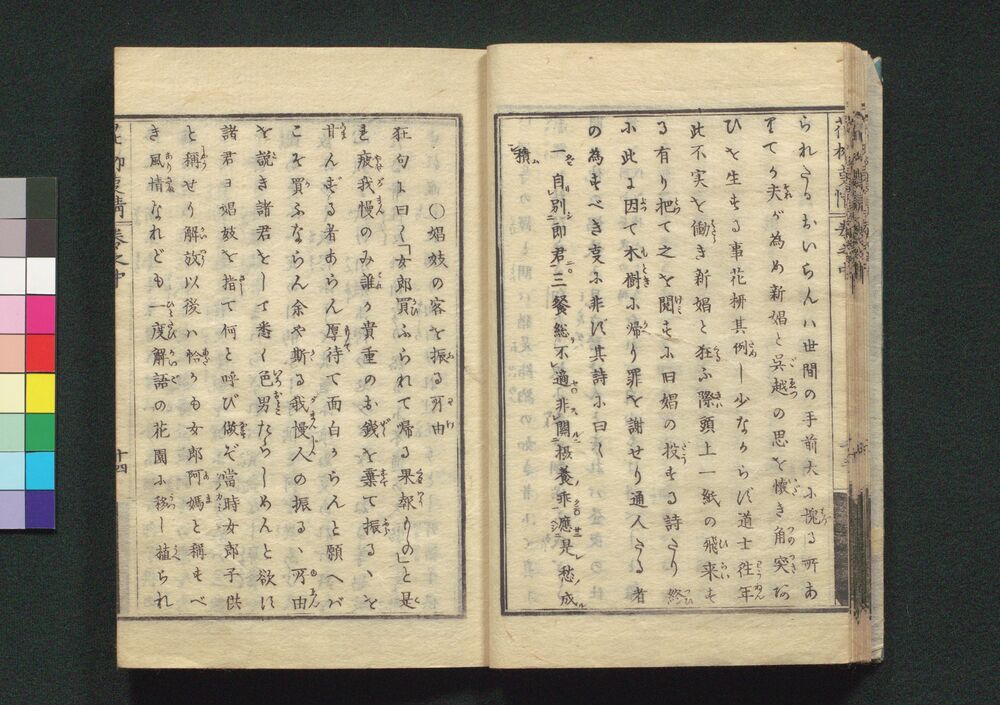 られたるおいらんハ世間の手前大に愧る所あ
りてか夫が為め新娼と呉越の思を懐き角突あ
ひを生ずる事花柳其例し少なからず道士往年
此不実を働き新娼と狂ふ際頭上一紙の飛来す
る有り把て之を閲すれ旧娼の投ずる詩なり終
に此に因て本樹に帰り罪を謝せり通人たる者
の為すべき事に非ず其詩に曰く
一自別郎君三餐総不適非關摂養乖應是愁成
積
〇娼妓の客を振る所由
狂句に曰く「女郎買ふられて帰る果報もの」と是
を疲我慢のみ誰か貴重のお銭を棄て振るゝを
甘んずる者あらん厚待て面白からんと願へバ
こそ買ふならん余や斯る我慢人の振るゝ所由
を説き諸君をして悉く色男たらしめんと欲す
諸君ヨ娼妓を指て何と呼び做ぞ當時女郎子供
と稱せり解放以後ハ恰かも女郎阿媽と稱すべ
き風情なれども一度解語の花園に移し植られ
花柳事情 巻之中
十四